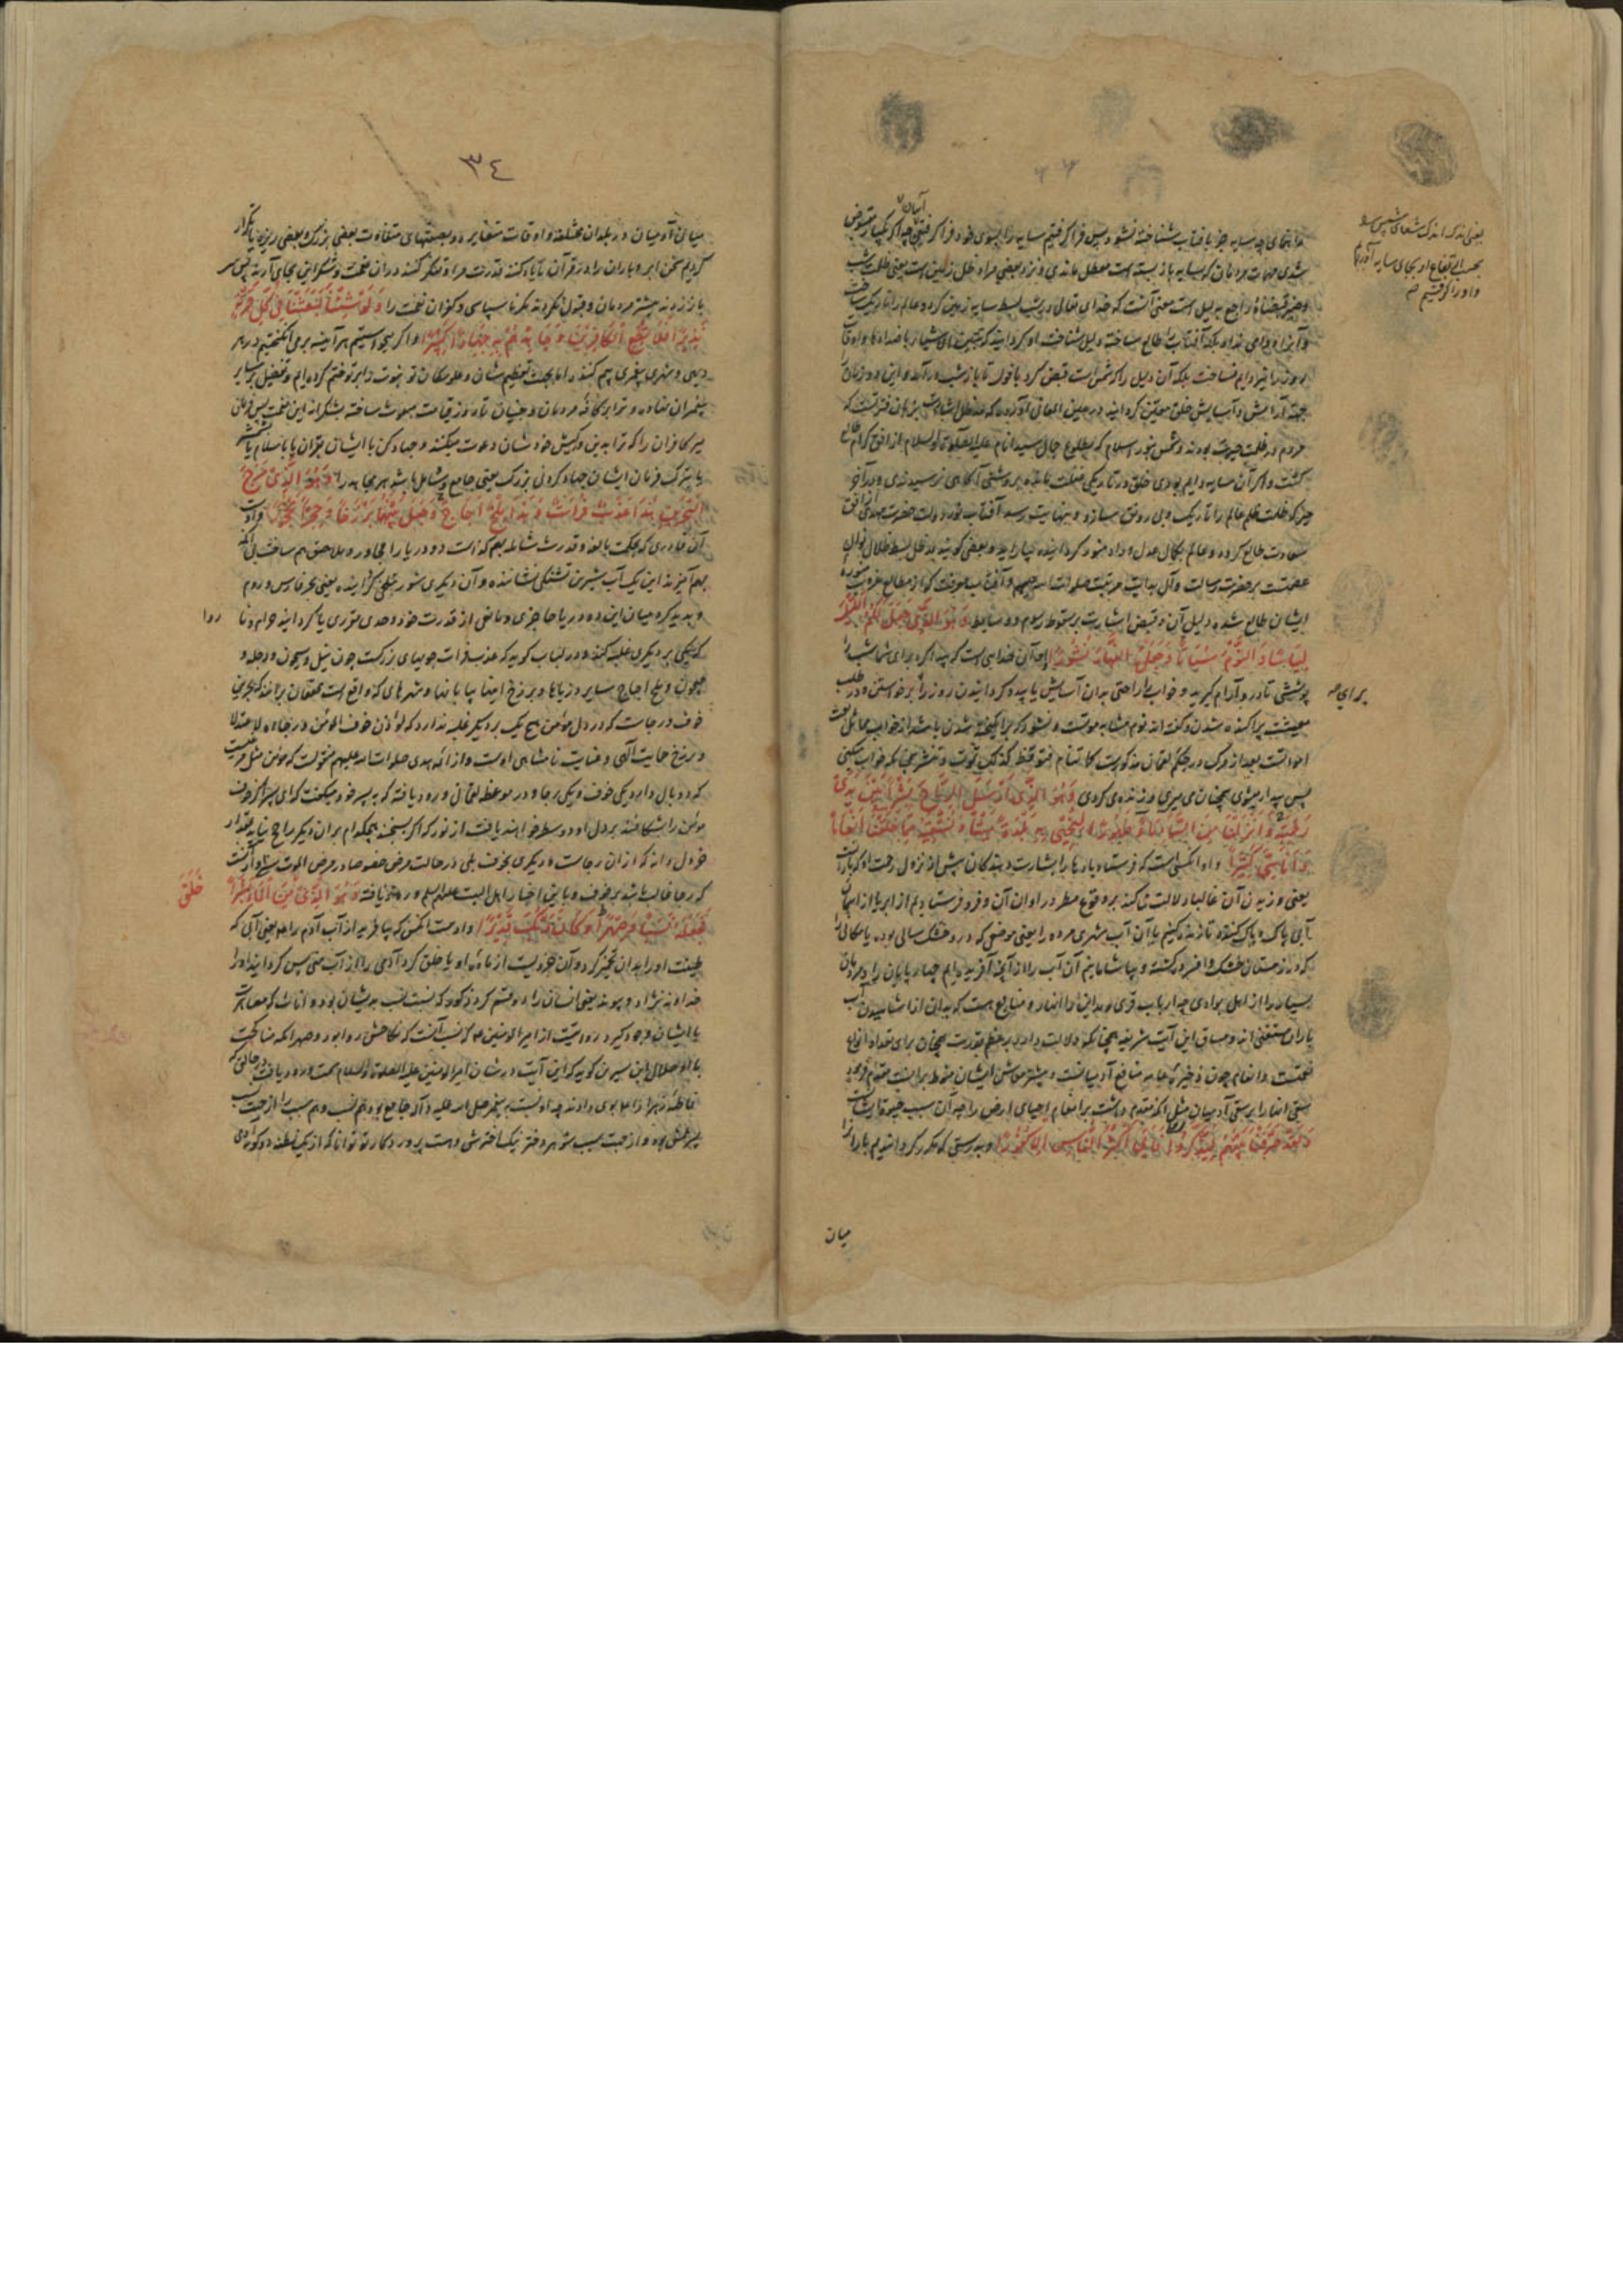 آسان
و راه نمای چه سایه جز بافتاب شناخته نشود پس فرا گرفتیم سایه را بسوی خود فرا گرفتنی چه اگر یکبار مقبوض
شدی مهمات مردمان که بسایه باز بسته است معطل ماندی و نزد بعضی مراد ظل زمین است یعنی ظلمت شب
راجع بدلیل است معنی آنست که خدای تعالی در شب بسط سایه زمین کرد و عالم را تاریک ساخت
و آنرا دوامی نداد بلکه آفتاب را طالع ساخته دلیل شناخت او کردانید
روز را نیز دایم نساخت بلکه آن دلیل را که شمس است قبض کرد تا باز شب در آمد و این دو زمان
جهة آرایش و آسایش خلق معین کردانید در عین المعانی آورده که مد ظلال اشارت بزمان فترتست که
مردم در ظلمت حیرت بودند و شمس نور اسلام که بطلوع جمال سید انام علیه الصلوة والسلام از افق کرام طالع
کشت و اگر آن سایه دایم بودی خلق در تاریکی غفلت مانده بروشنی آگاهی نرسیدندی و در آخر
چیز که ظلمت ظلم عالم را تاریک و بی رونق سازد و بنهایت رسد آفتاب نور دولت حضرت مهدی از افق
سعادت طالع کردد و عالم بکمال عدل و داد منور کردانیده بیاراید و بعضی کویند مد ظل بسط ظلال نوال
عصمتست بر حضرت رسالت و آل
ایشان طالع شده دلیل آن و قبض اشارت بر سقوط رسوم و وسایط وَهُوَ الَّذِی جَعَلَ لَکُمُ اللَّیْلَ
لِبَاسًا وَالنَّوْمَ سُبَاتًا وَجَعَلَ النَّهَارَ نُشُورًا و او آن خدایی است که پیدا کرد برای شما شب را
پوششی تا در و آرام گیرید و خواب را راحتی بدان آسایش یابید و کردانید روز را برخواستن و در طلب
معیشت پراکنده شدن و گفته اند نوم مشابه موتست و نشور که برانگیخته شدن باشد از خواب مماثل بعث
امواتست بعد از مرگ در حکم لقمان مذکورست کما تنام فتوقظ کذلک تموت و تنشر همچنانکه خواب میکنی
پس بیدار میشوی همچنان می میری و زنده می گردی وَهُوَ الَّذِی اَرْسَلَ الرِّیَاحَ بُشْرًا بَیْنَ یَدَیْ
رَحْمَتِهِ وَاَنْزَلْنَا مِنَ السَّمَاءِ مَاءً طَهُورًا لِنُحْیِیَ بِهِ بَلْدَةً مَیْتًا وَنُسْقِیَهُ مِمَّا خَلَقْنَا اَنْعَامًا
وَاَنَاسِیَّ کَثِیرًا و او آنکسی است که فرستاد بادها را بشارت دهندگان پیش از نزول رحمت او که بارانست
یعنی وزیدن آن غالبا دلالت می کند بر وقوع مطر در اوان آن و فرو فرستادیم از ابر یا از آسمان
آبی پاک و پاک کننده تا زنده کنیم بآن آب شهری مرده را یعنی موضعی که در و خشک سالی بوده یا مکانی را
که در زمستان خشک و افسرده کشته و بیاشامانیم آن آب را از آنچه آفریده ایم چهارپایان را و مردمان
بسیار را از اهل بوادی چه ارباب قری و مداین را انهار و منابع هست که بدان از آشامیدن آب
باران مستغنی اند و مساق این آیت شریفه همچنانکه دلالت دارد بر عظم قدرت همچنان برای تعداد انواع
نعمتست و انعام چون ذخیره عامه منافع آدمیانست و بیشتر معاش ایشان منوط بر آنست مقدم فرمود
سقی انعام را بر سقی آدمیان مثل آنکه مقدم داشت بر انعام احیای ارض را چه آن سبب حیوة ایشان است
وَلَقَدْ صَرَّفْنَاهُ بَیْنَهُمْ لِیَذَّکَّرُوا فَاَبَی اَکْثَرُ النَّاسِ اِلَّا کُفُورًا و بدرستی که مکرر کردانیدیم باران را
میان
یعنی اندک اندک شعاع شمس
بحسب ارتفاع او بجای سایه آوردیم
و او را گرفتیم
برای
٣٤
میان آدمیان در بلدان مختلفه و اوقات متغایره و بصفتهای متفاوت بعضی بزرگ و بعضی ریزه یا تکرار
کردیم سخن ابر و باران را در قرآن تا یاد کنند قدرت مرا و تفکر کنند در ان نعمت و شکر این بجای آرند پس سر
باز زدند بیشتر مردمان و قبول نکردند مگر ناسپاسی و کفران نعمت را وَلَوْ شِئْنَا لَبَعَثْنَا فِی کُلِّ قَرْیَةٍ
نَذِیرًا فَلَا تُطِعِ الْکَافِرِینَ وَجَاهِدْهُمْ بِهِ جِهَادًا کَبِیرًا و اگر میخواستیم هر آینه بر می انگیختیم در هر
دیهی و شهری پیغمبری بیم کننده اما بجهت تعظیم شان و علو مکان تو نبوت را بر تو ختم کرده ایم و تفضیل بر سایر
پیغمبران نهاده و ترا بر کافه مردمان و جنیان تا روز قیامت مبعوث ساخته بشکرانه این نعمت پس فرمان
مبر کافران را که ترا بدین و کیش خودشان دعوت میکنند و جهاد کن با ایشان بقرآن یا باسلام یا شمشیر
یا بترک فرمان ایشان جهاد کردنی بزرگ یعنی جامع و شامل باشد هر مجاهده را وَهُوَ الَّذِی مَرَجَ
الْبَحْرَیْنِ هَذَا عَذْبٌ فُرَاتٌ وَهَذَا مِلْحٌ اُجَاجٌ وَجَعَلَ بَیْنَهُمَا بَرْزَخًا وَحِجْرًا مَحْجُورًا و اوست
آن قادری که بحکمت بالغه و قدرت شامله بهم گذاشت دو دریا را مجاور و ملاصق هم ساخت بی آنکه
بهم آمیزند این یک آب شیرین تشنگی نشاننده و آن دیگری شور بتلخی گراینده یعنی بحر فارس و روم
و پدید کرد میان این دو دریا حاجزی و مانعی از قدرت خود و حدی مقرری یا گردانید حرام و ناروا
که یکی بر دیگری غلبه کند و در لباب گوید که عذب فرات جویهای بزرگست چون نیل و سیحون و دجله و
جیحون و ملح اجاج سایر دریاها و برزخ اینها بیابانها و شهرهای که واقع است محققان برانند که بحرین
خوف و رجاست که در دل مؤمن هیچ یک بر دیگر غلبه ندارد که لو وزن خوف المؤمن و رجاءه لاعتدلا
و برزخ حمایت الهی و عنایت نامتناهی اوست و از ائمه هدی صلوات الله علیهم منقولست که مؤمن مثل مرغیست
که دو بال دارد یکی خوف و یکی رجا و در موعظه لقمان ورود یافته که به پسر خود میگفت که ای پسر اگر جوف
مؤمن را بشکافند بر دل او دو سطر خواهند یافت از نور که اگر بسنجند هیچکدام بران دیگر راجح نیاید بمقدار
خردل دانه که از ان رجاست و دیگری خوف بلی در حالت مرض خصوصا در مرض الموت سزاوار آنست
که رجا غالب باشد بر خوف و باین اخبار اهل البیت علیهم السلم ورود یافته وَهُوَ الَّذِی خَلَقَ مِنَ الْمَاءِ بَشَرًا
فَجَعَلَهُ نَسَبًا وَصِهْرًا وَکَانَ رَبُّکَ قَدِیرًا و اوست آنکس که بیافرید از آب آدم را یعنی آبی که
طینت او را بدان تخمیر کرد و آن جزویست از ماده او یا خلق کرد آدمی را از آب منی پس گردانید او را
خداوند نژاد و پیوند یعنی انسان را دو قسم کرد ذکور که نسبت نسب بدیشان بود و اناث که مصاهرت
با ایشان وجود گیرد روایتست از امیر المؤمنین که نسب آنست که نکاحش روا نبود و صهر آنکه مناکحت
با او حلال ابن سیرین گوید که این آیت در شان امیر المؤمنین علیه الصلوة والسلام سمت ورود یافت در حالتی که
فاطمه زهرا را بوی دادند چه او نسبت به پیغمبر صلی الله علیه و آله جامع بود هم نسب و هم سبب را از جهت نسب
پسر عمش بود و از جهت سبب شوهر دختر نیک اخترش و هست پروردگار تو توانا که از یک نطفه دو گونه آدمی
روا
خَلَقَ